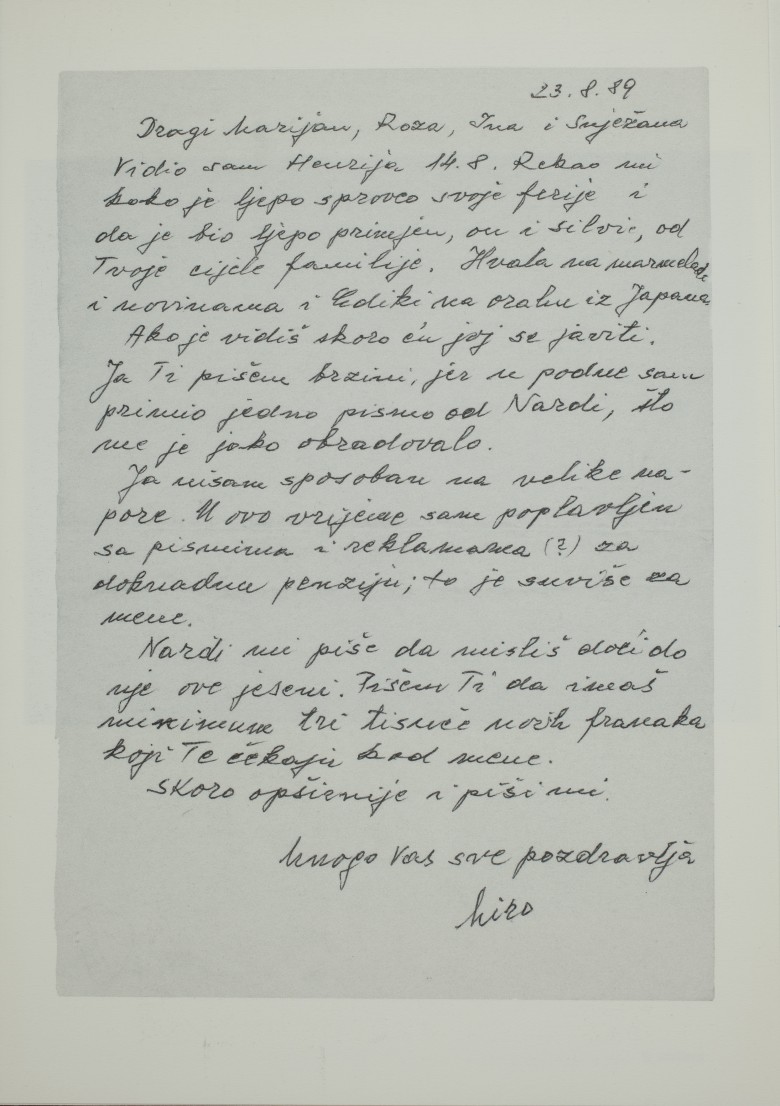 23.8.89
Dragi Marijan, Roza, Ina i Snježana
Vidio sam Henrija 14.8. Rekao mi
kako je ljepo sproveo svoje ferije i
da je bio ljepo primjen, on i Silvie, od
Tvoje cijele familije. Hvala na marmelade
i novinama i Ediki na orahu iz Japana
Ako je vidiš skoro ću joj se javiti.
Ja Ti pišem brzini, jer u podne sam
primio jedno pismo od Nardi, što
me je jako obradovalo.
Ja nisam sposoban na velike na-
pore. U ovo vrijeme sam poplavljen
sa pismima i reklamama (?) za
doknadnu penziju; to je suviše za
mene.
Nardi mi piše da misliš doći do
nje ove jeseni. Pišem Ti da imaš
minimum tri tisuće novih franaka
koji Te čekaju kod mene.
Skoro opšienije i piši mi.
Mnogo Vas sve pozdravlja
Miro